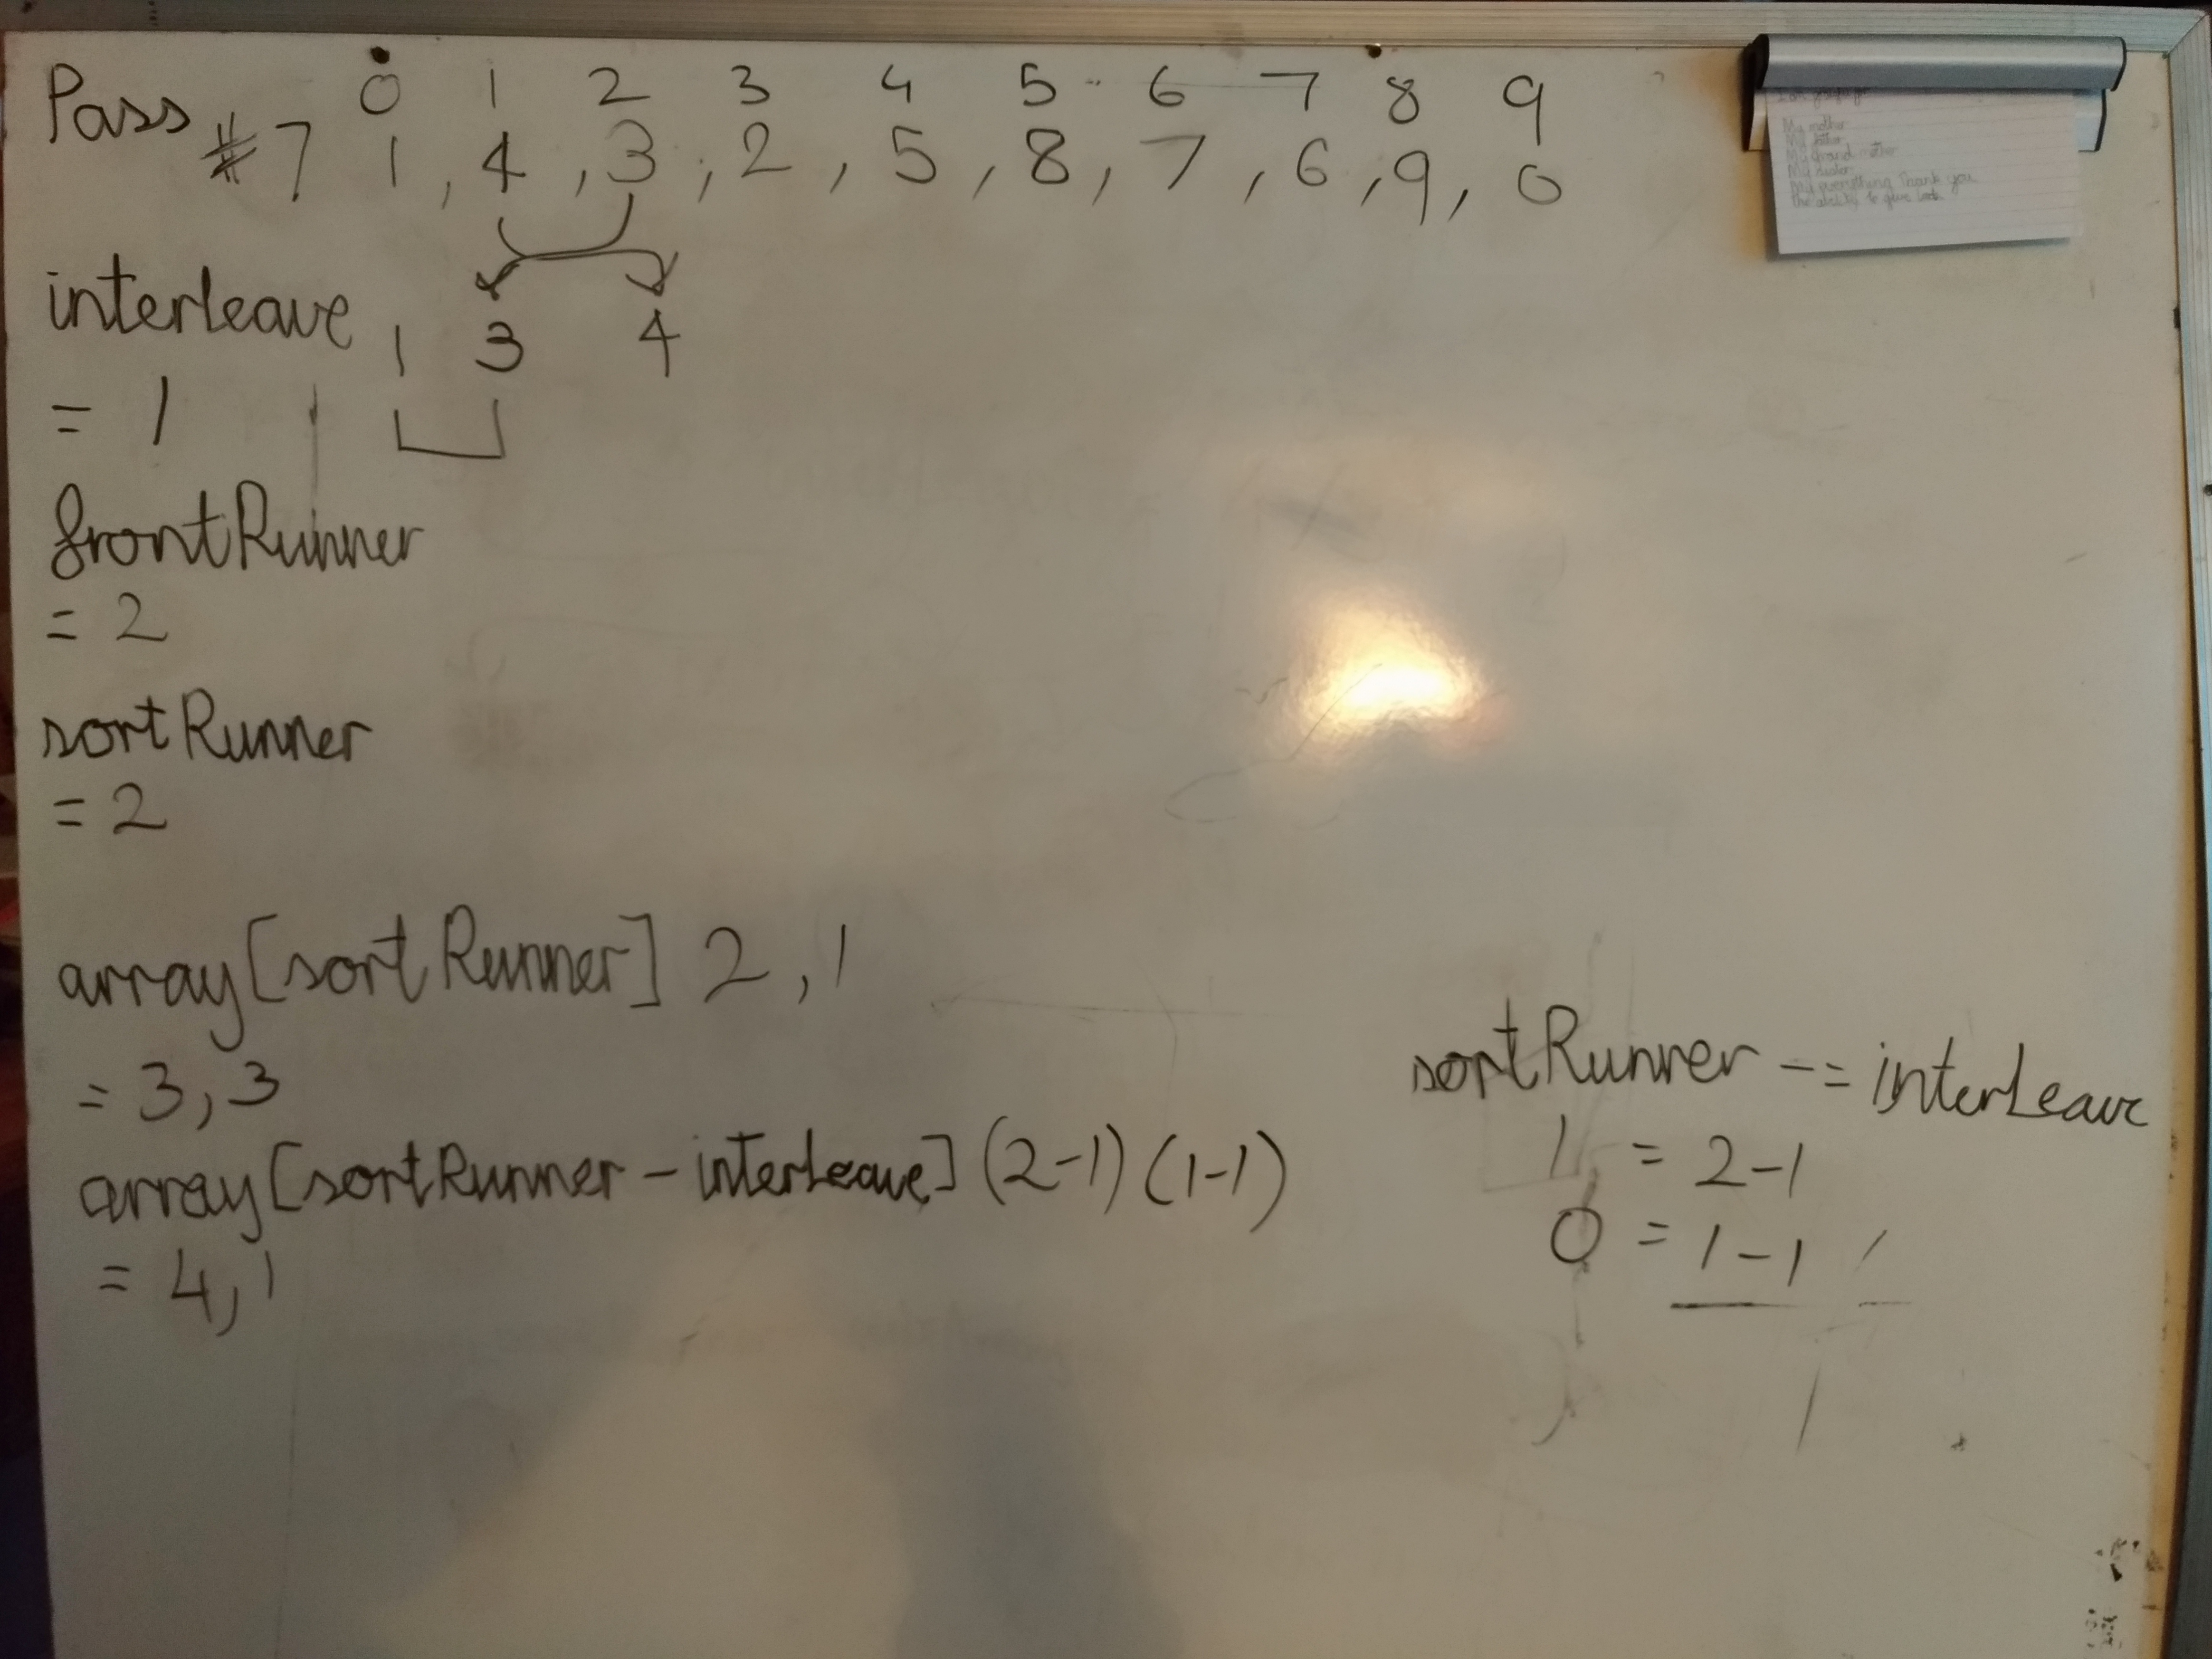 Pass 0 1 2 3 4 5 6 7 8 9
#7 1, 4, 3, 2, 5, 8, 7, 6, 9, 0
interleave 1 3 4
= 1
frontRunner
= 2
sortRunner
= 2
array[sortRunner] 2, 1
= 3, 3
array[sortRunner - interleave] (2-1) (1-1)
= 4, 1
sortRunner -= interLeave
1 = 2-1
0 = 1-1
My mother
My
My grand mother
My
My everything Thank you
the ability to give